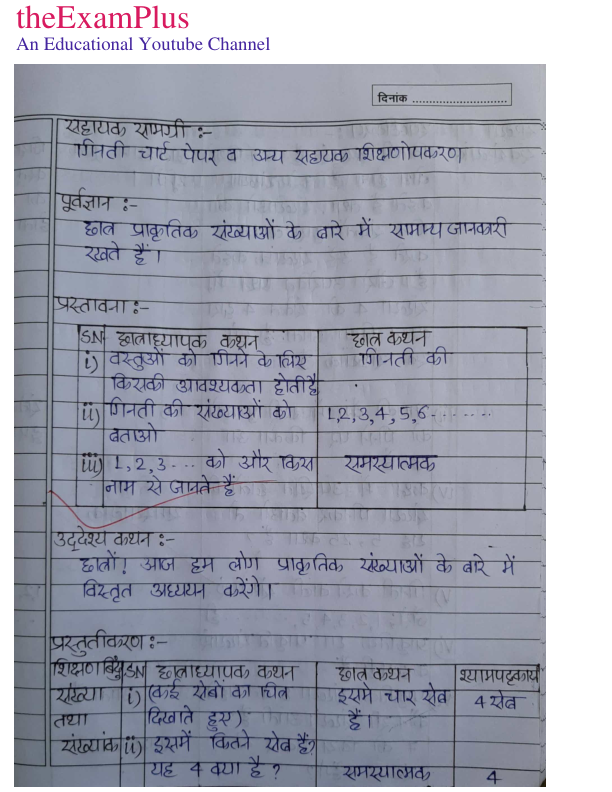 theExamPlus
An Educational Youtube Channel
दिनांक ............................
सहायक सामग्री :-
गिनती चार्ट पेपर व अन्य सहायक शिक्षणोपकरण।
पूर्वज्ञान :-
छात्र प्राकृतिक संख्याओं के बारे में सामान्य जानकारी
रखते हैं।
प्रस्तावना :-
SN छात्राध्यापक कथन छात्र कथन
i) वस्तुओं को गिनने के लिए गिनती की
किसकी आवश्यकता होती है
ii) गिनती की संख्याओं को 1,2,3,4,5,6.......
बताओ
iii) 1,2,3... को और किस समस्यात्मक
नाम से जानते हैं
उद्देश्य कथन :-
छात्रों! आज हम लोग प्राकृतिक संख्याओं के बारे में
विस्तृत अध्ययन करेंगे।
प्रस्तुतीकरण :-
शिक्षण बिंदु SN छात्राध्यापक कथन छात्र कथन श्यामपट्टकार्य
संख्या i) (कई सेबों का चित्र इसमें चार सेब 4 सेब
तथा दिखाते हुए) हैं।
संख्यांक ii) इसमें कितने सेब हैं?
यह 4 क्या है ? समस्यात्मक 4